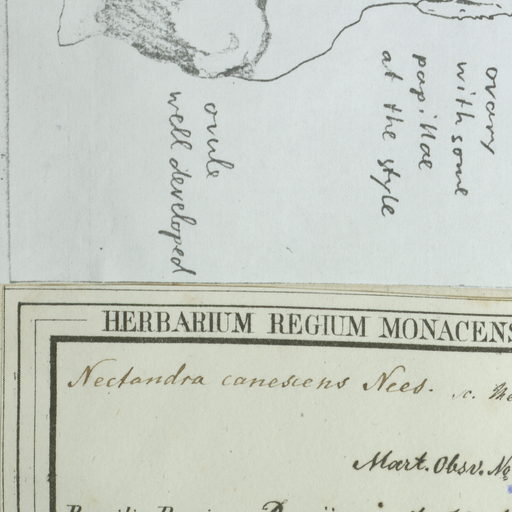 ovary
with some
papillae
at the style
ovule
well developed
HERBARIUM REGIUM MONACENS
Nectandra canescens Nees.
Mart. Obsv. No